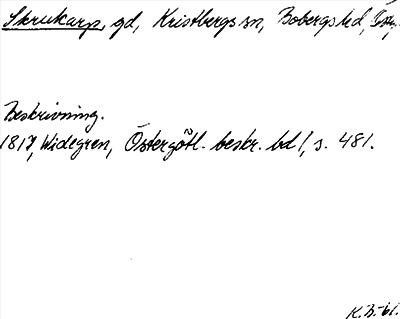 Skrukarp, gd, Kristbergs sn, Bobergs hd, Ög.
Beskrivning.
1817, Widegren, Östergötl. beskr. bd 1, s. 481.
K.B.-61.